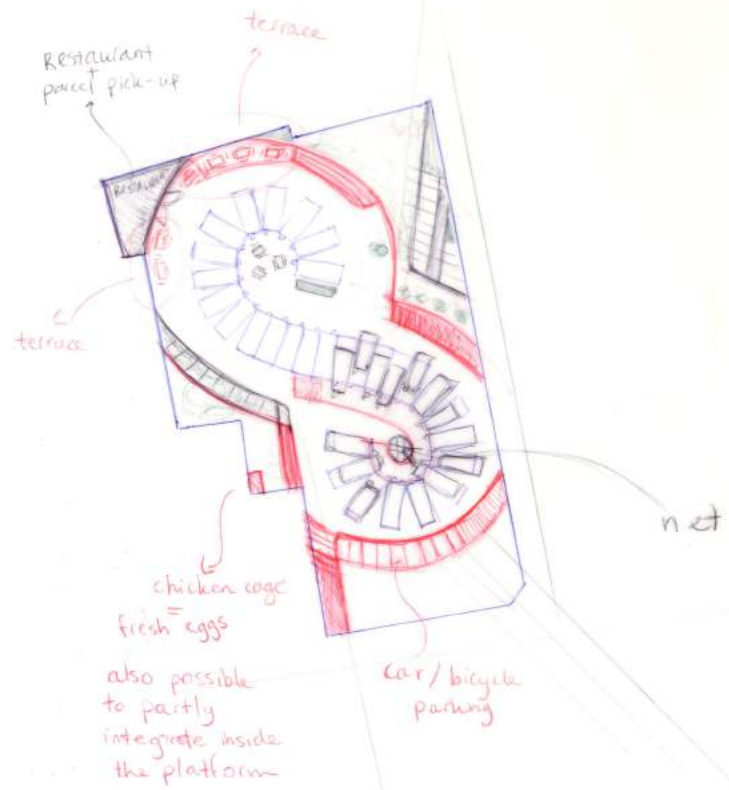 terrace
Restaurant
+
parcel pick-up
RESTAURANT
terrace
net
chicken cage
=
fresh eggs
also possible
to partly
integrate inside
the platform
car/bicycle
parking